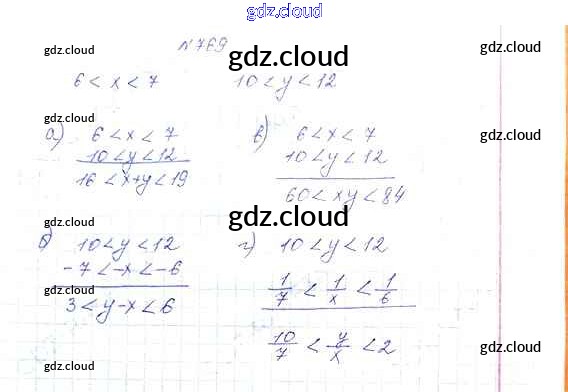 gdz.cloud
№769
gdz.cloud gdz.cloud gdz.cloud
6 < x < 7 10 < y < 12
а) 6 < x < 7
10 < y < 12
16 < x+y < 19
в) 6 < x < 7
10 < y < 12
60 < xy < 84
gdz.cloud gdz.cloud gdz.cloud
б) 10 < y < 12
-7 < -x < -6
3 < y-x < 6
г) 10 < y < 12
1/7 < 1/x < 1/6
10/7 < y/x < 2
gdz.cloud gdz.cloud gdz.cloud
gdz.cloud gdz.cloud